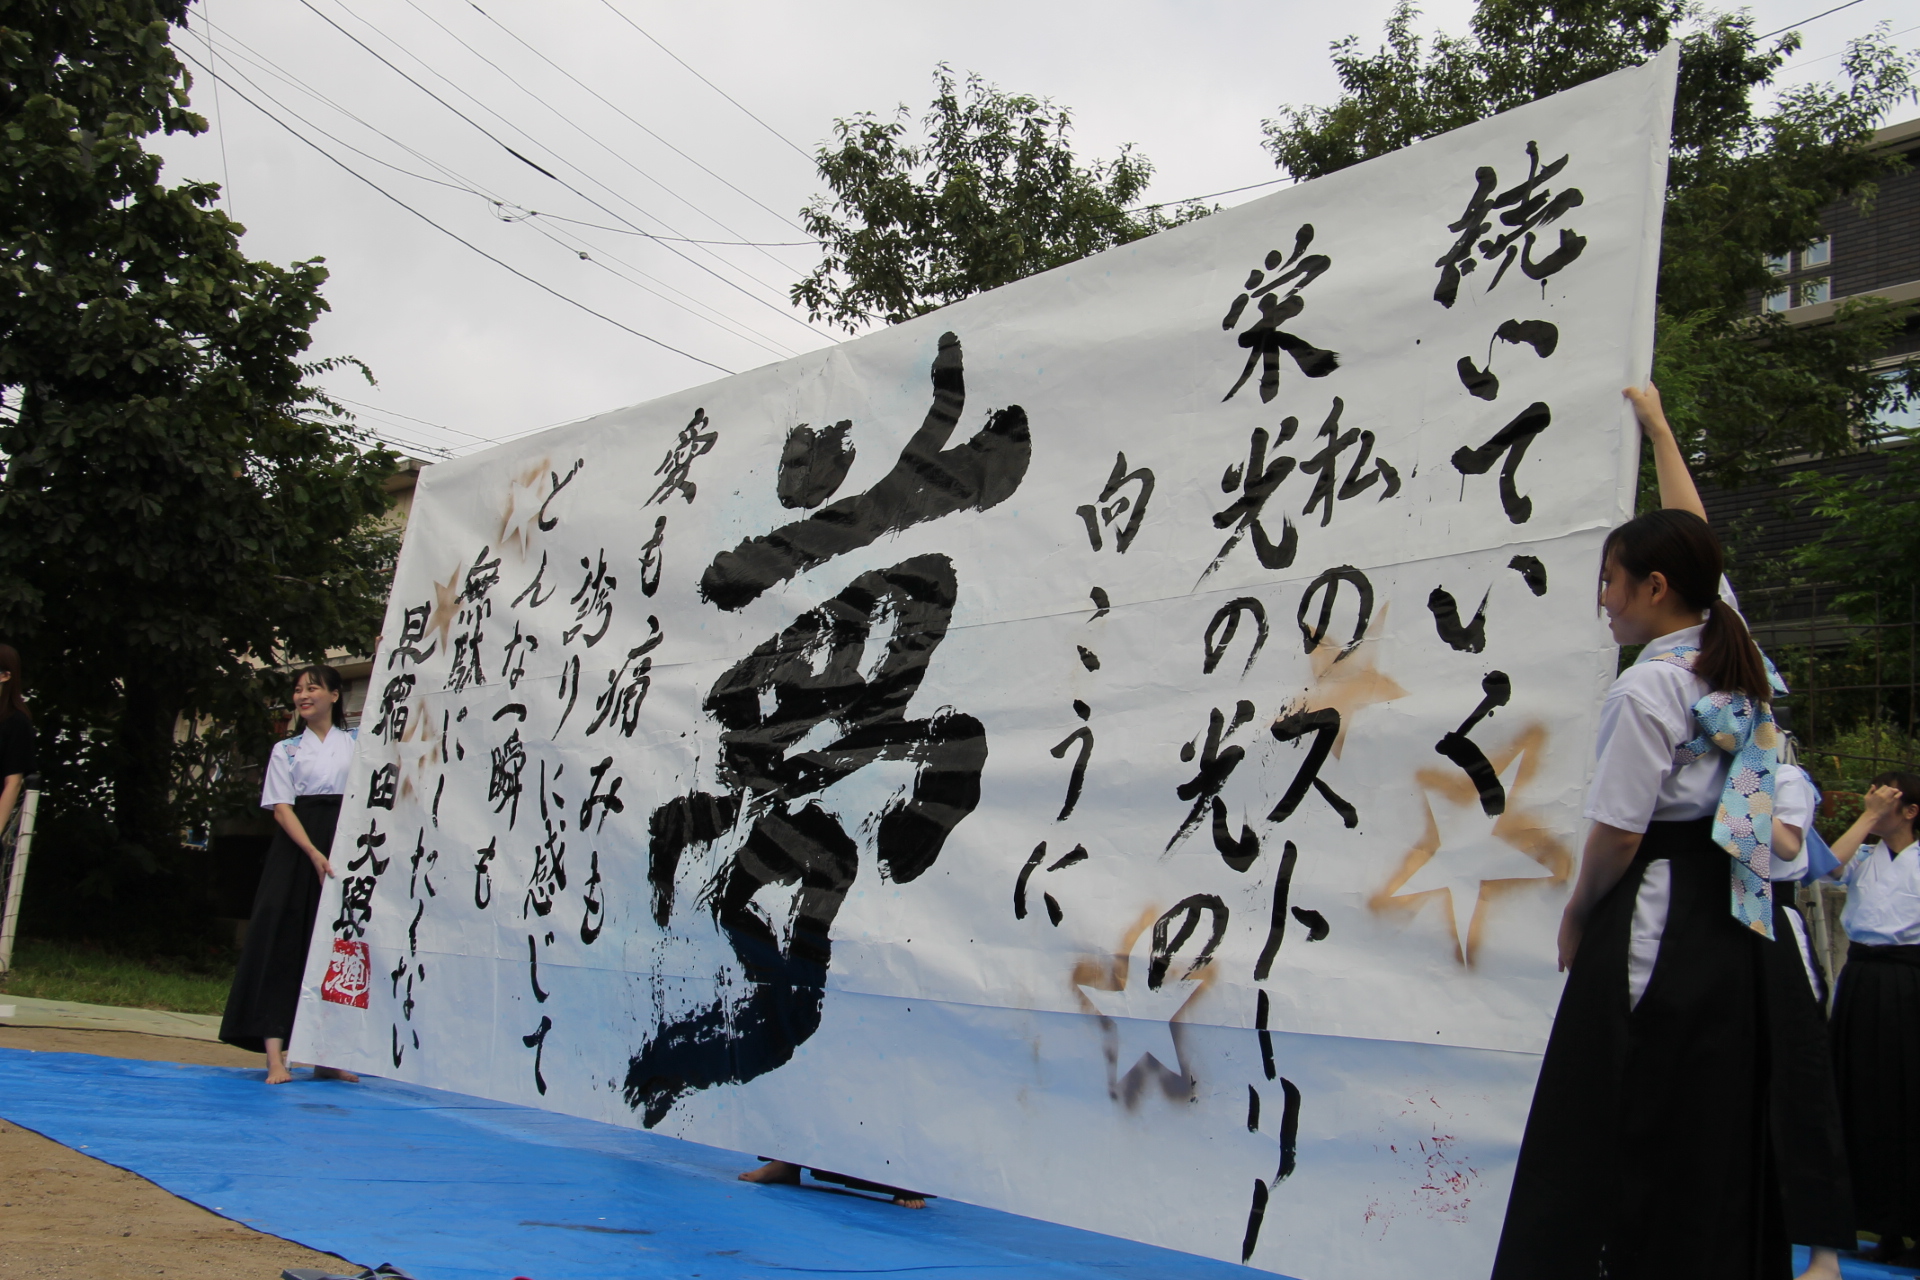 続いていく
私のストーリー
栄光の光の
向こうに
夢
愛も痛みも
誇りに感じて
どんな一瞬も
無駄にしたくない
早稲田大学